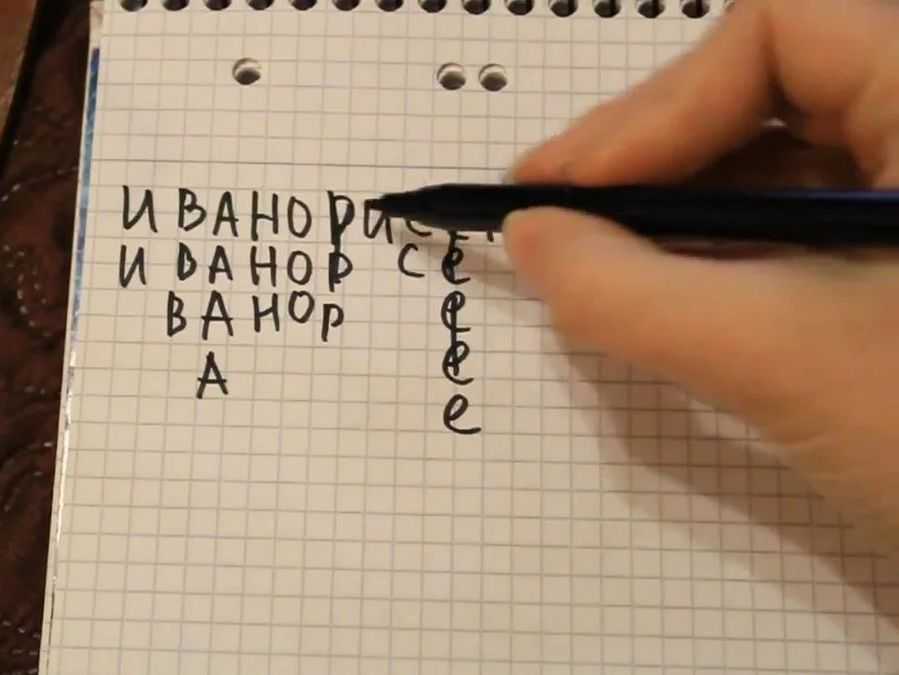 ИВАНОР
ИВАНОР се
ВАНОР е
А е
е